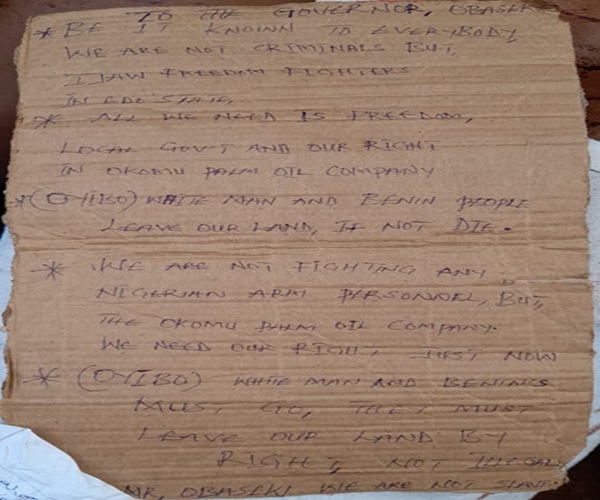 TO THE GOVERNOR, OBASEKI
* BE IT KNOWN TO EVERYBODY,
WE ARE NOT CRIMINALS BUT,
IJAW FREEDOM FIGHTERS
IN EDO STATE,
* ALL WE NEED IS FREEDOM,
LOCAL GOV'T AND OUR RIGHT
IN OKOMU PALM OIL COMPANY
* (OYIBO) WHITE MAN AND BENIN PEOPLE
LEAVE OUR LAND, IF NOT DIE.
* WE ARE NOT FIGHTING ANY
NIGERIAN ARM PERSONNEL, BUT,
THE OKOMU PALM OIL COMPANY.
WE NEED OUR RIGHT, JUST NOW
* (OYIBO) WHITE MAN AND BENINS
MUST GO, THEY MUST
LEAVE OUR LAND BY
RIGHT, NOT ILLEGAL
MR, OBASEKI WE ARE NOT SLAVE.